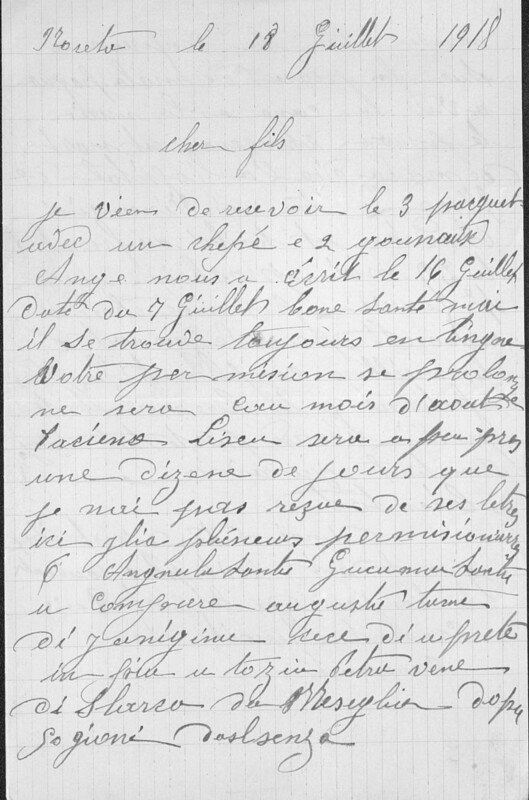 Noreta le 18 Guillet 1918
cher fils
je viens de recevoir le 3 pacquet
avec un chepé e 2 gournaux
Ange nous a écrit le 16 Guillet
daté du 7 Guillet bone santé mai
il se trouve toujours en lingne
Votre permision se prolonge
ne sera cau mois d'aout
Lucien sera a peu pres
une dizene de jours que
je nai pas reçue de ses letres
ici glia plusieurs permisionaires
6 Angnula Santi
u compare auguste tume
di u prete
in fóra u toziu Petru vene
di da dopu
85 gioni dasbsenza